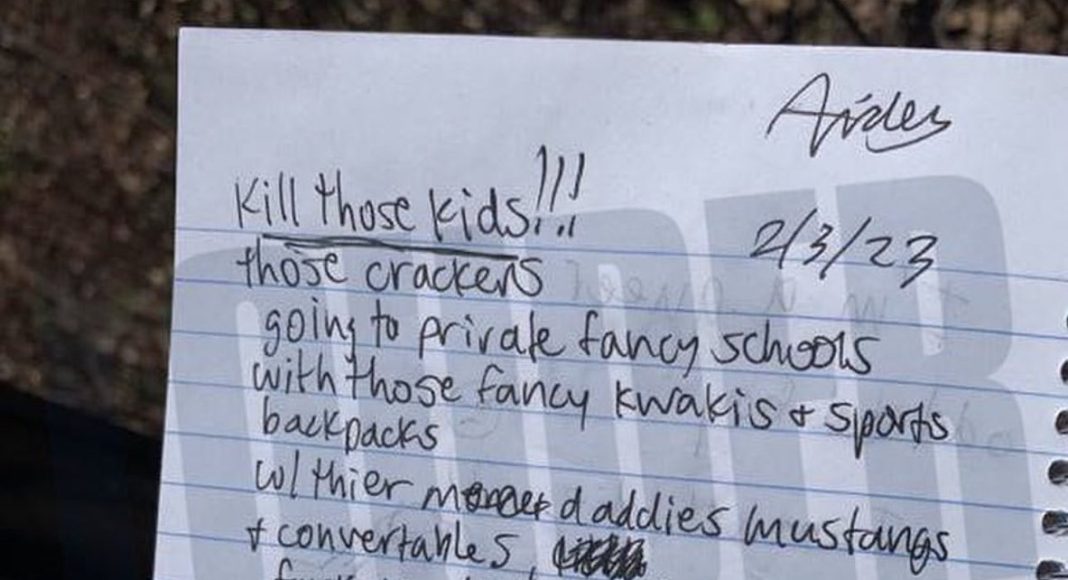 Aiden
Kill those kids!!!
2/3/23
those crackers
going to private fancy schools
with those fancy kwakis + sports
backpacks
w/ thier daddies mustangs
+ convertables